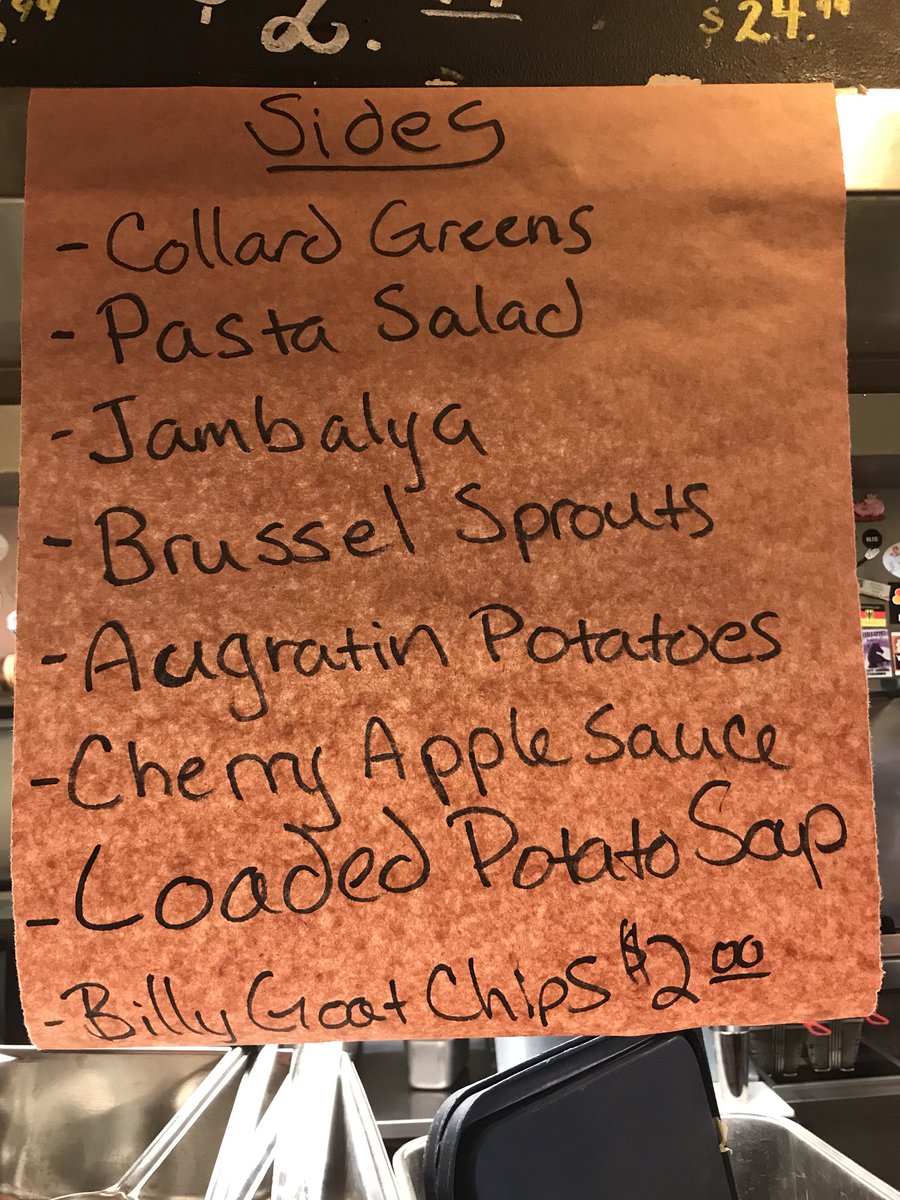 $2.
$24.99
Sides
- Collard Greens
- Pasta Salad
- Jambalya
- Brussel Sprouts
- Augratin Potatoes
- Cherry Apple Sauce
- Loaded Potato Soup
- Billy Goat Chips $2.00